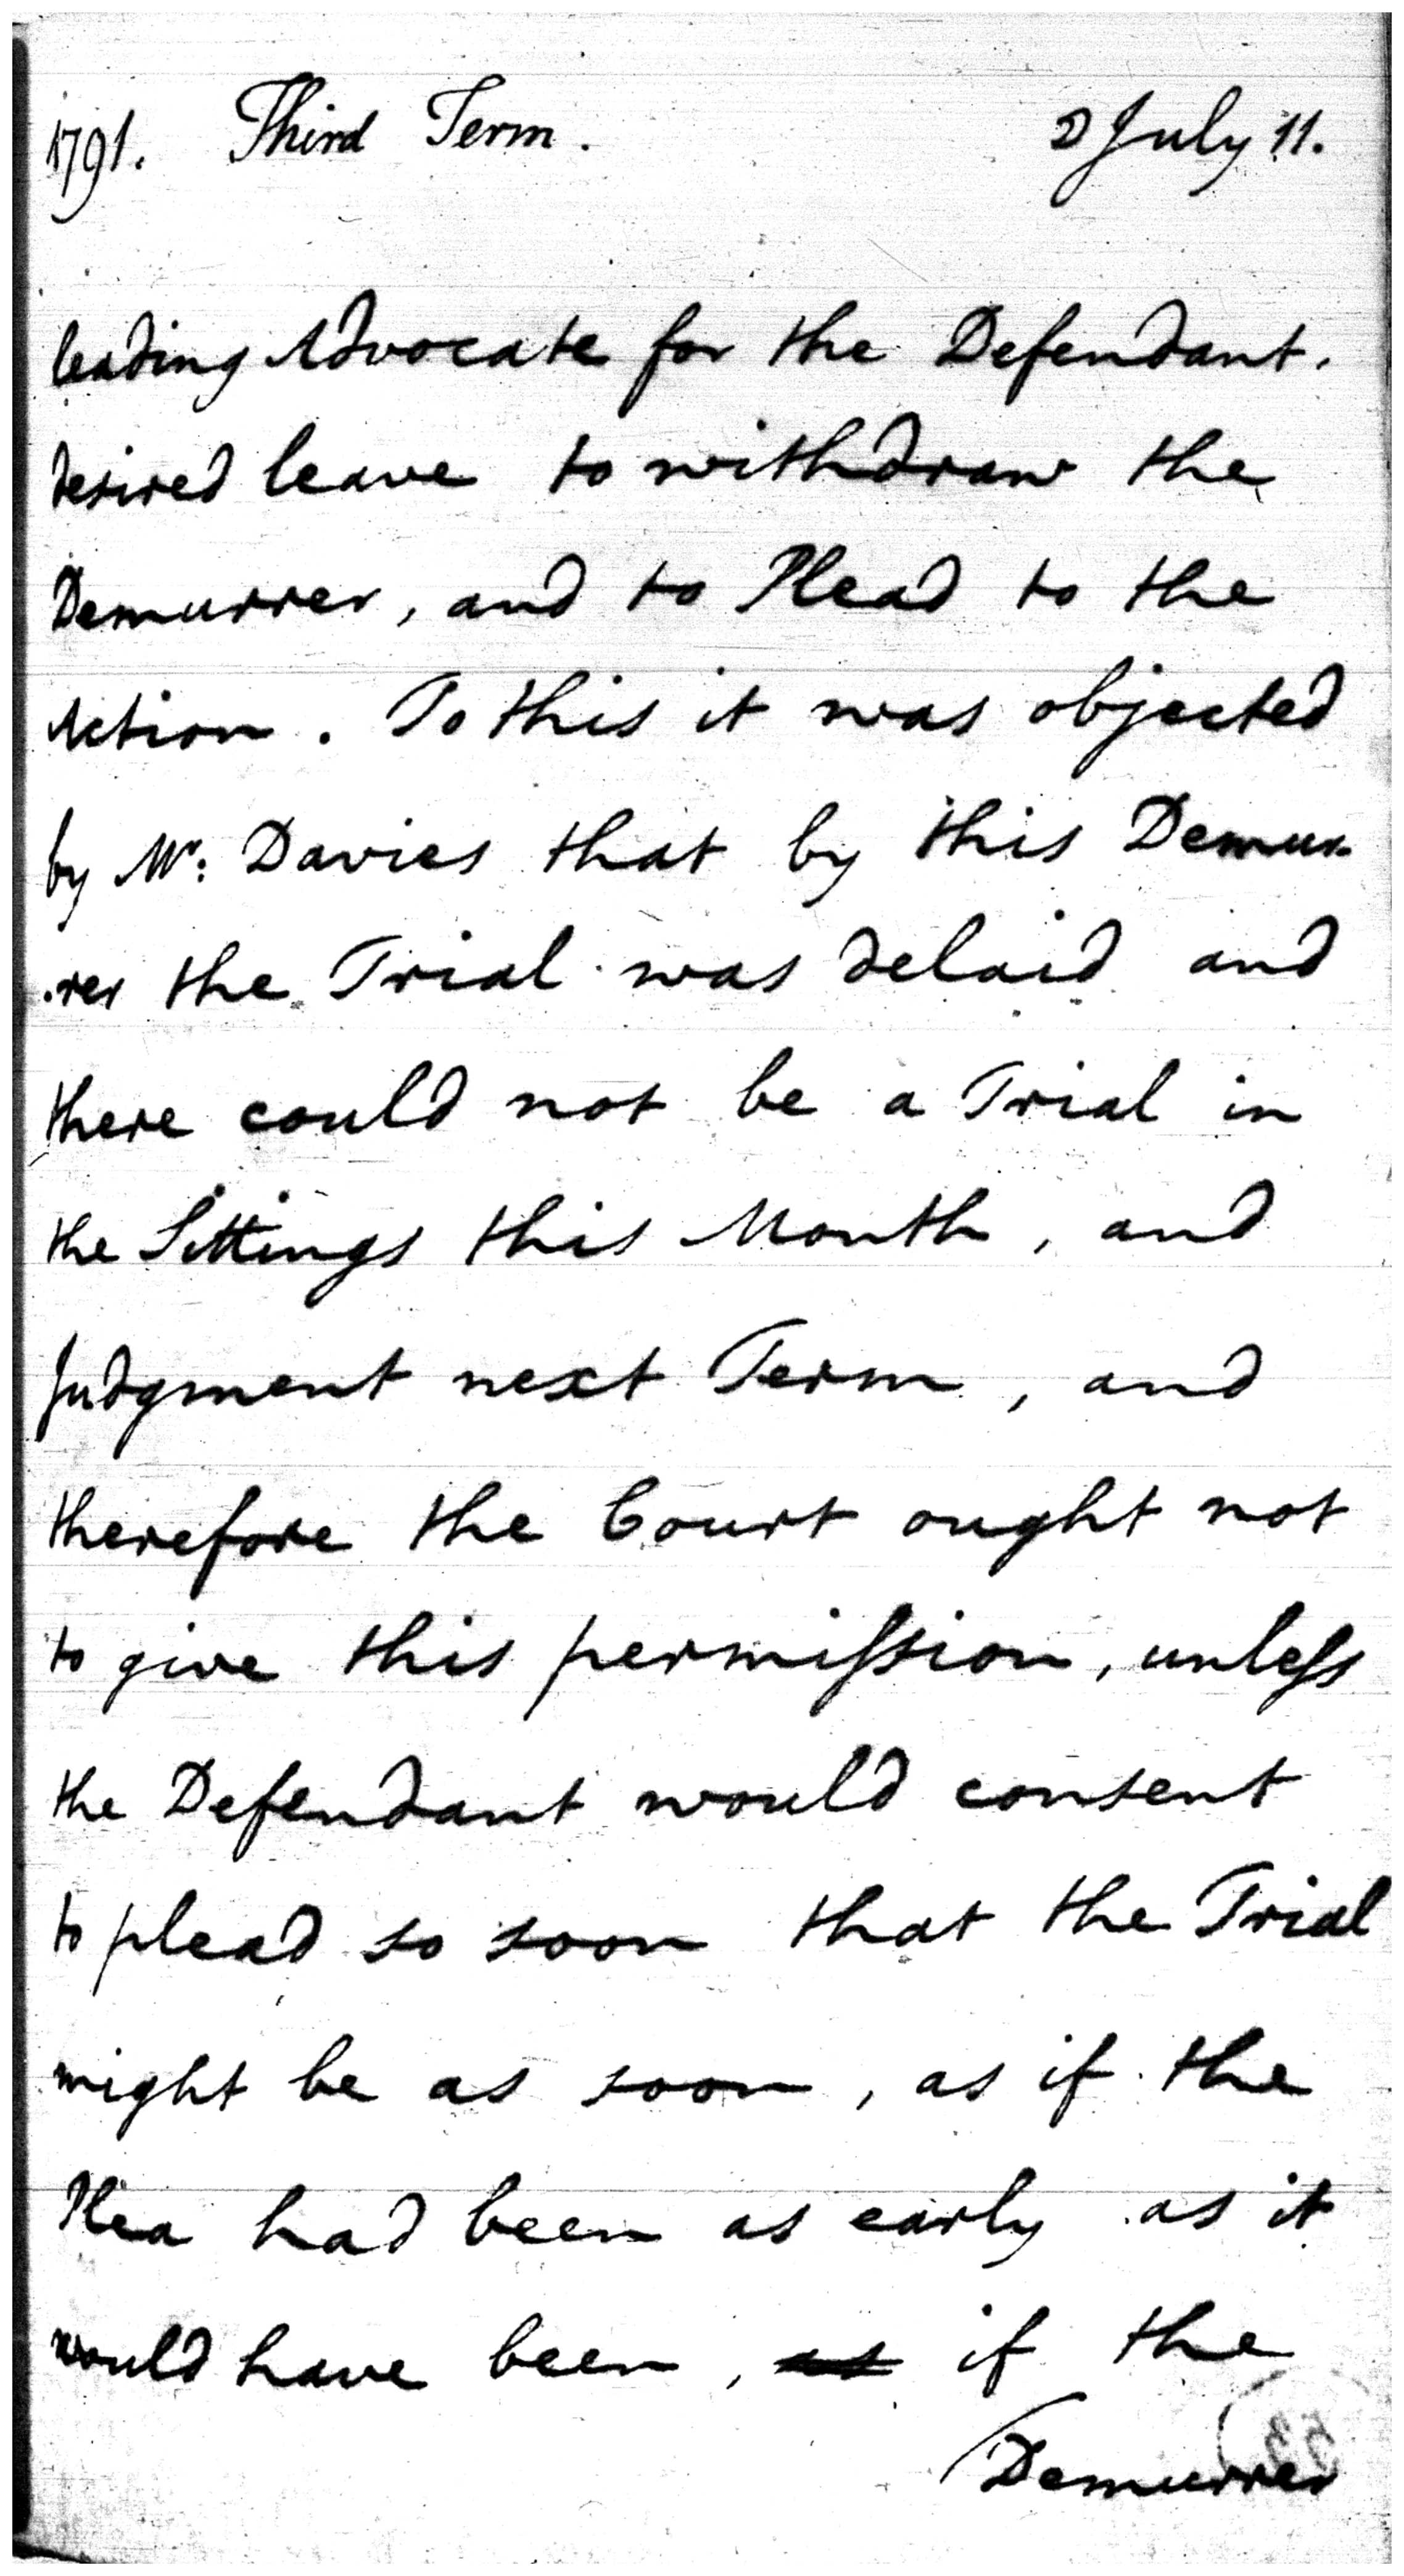 1791. Third Term. ☽ July 11.
leading Advocate for the Defendant.
desired leave to withdraw the
Demurrer, and to Plead to the
Action. To this it was objected
by Mr: Davies that by this Demur-
.rer the Trial was delaid and
there could not be a Trial in
the Sittings this Month, and
Judgment next Term, and
therefore the Court ought not
to give this permiſsion, unleſs
the Defendant would consent
to plead so soon that the Trial
might be as soon, as if the
Plea had been as early as it
would have been, as if the
Demurrer
53